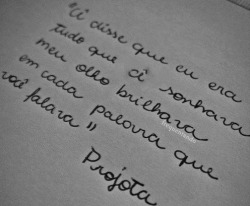 "Ci disse que eu era
tudo que ci sonhava
meu olho brilhava
em cada palavra que
você falava"
Projota